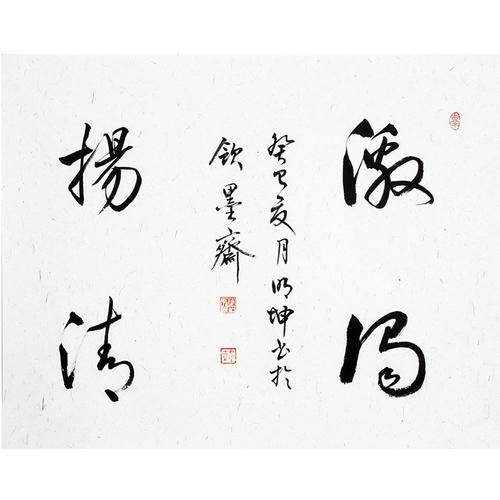 激濁
癸巳夏月明坤書於
飲墨齋
揚清